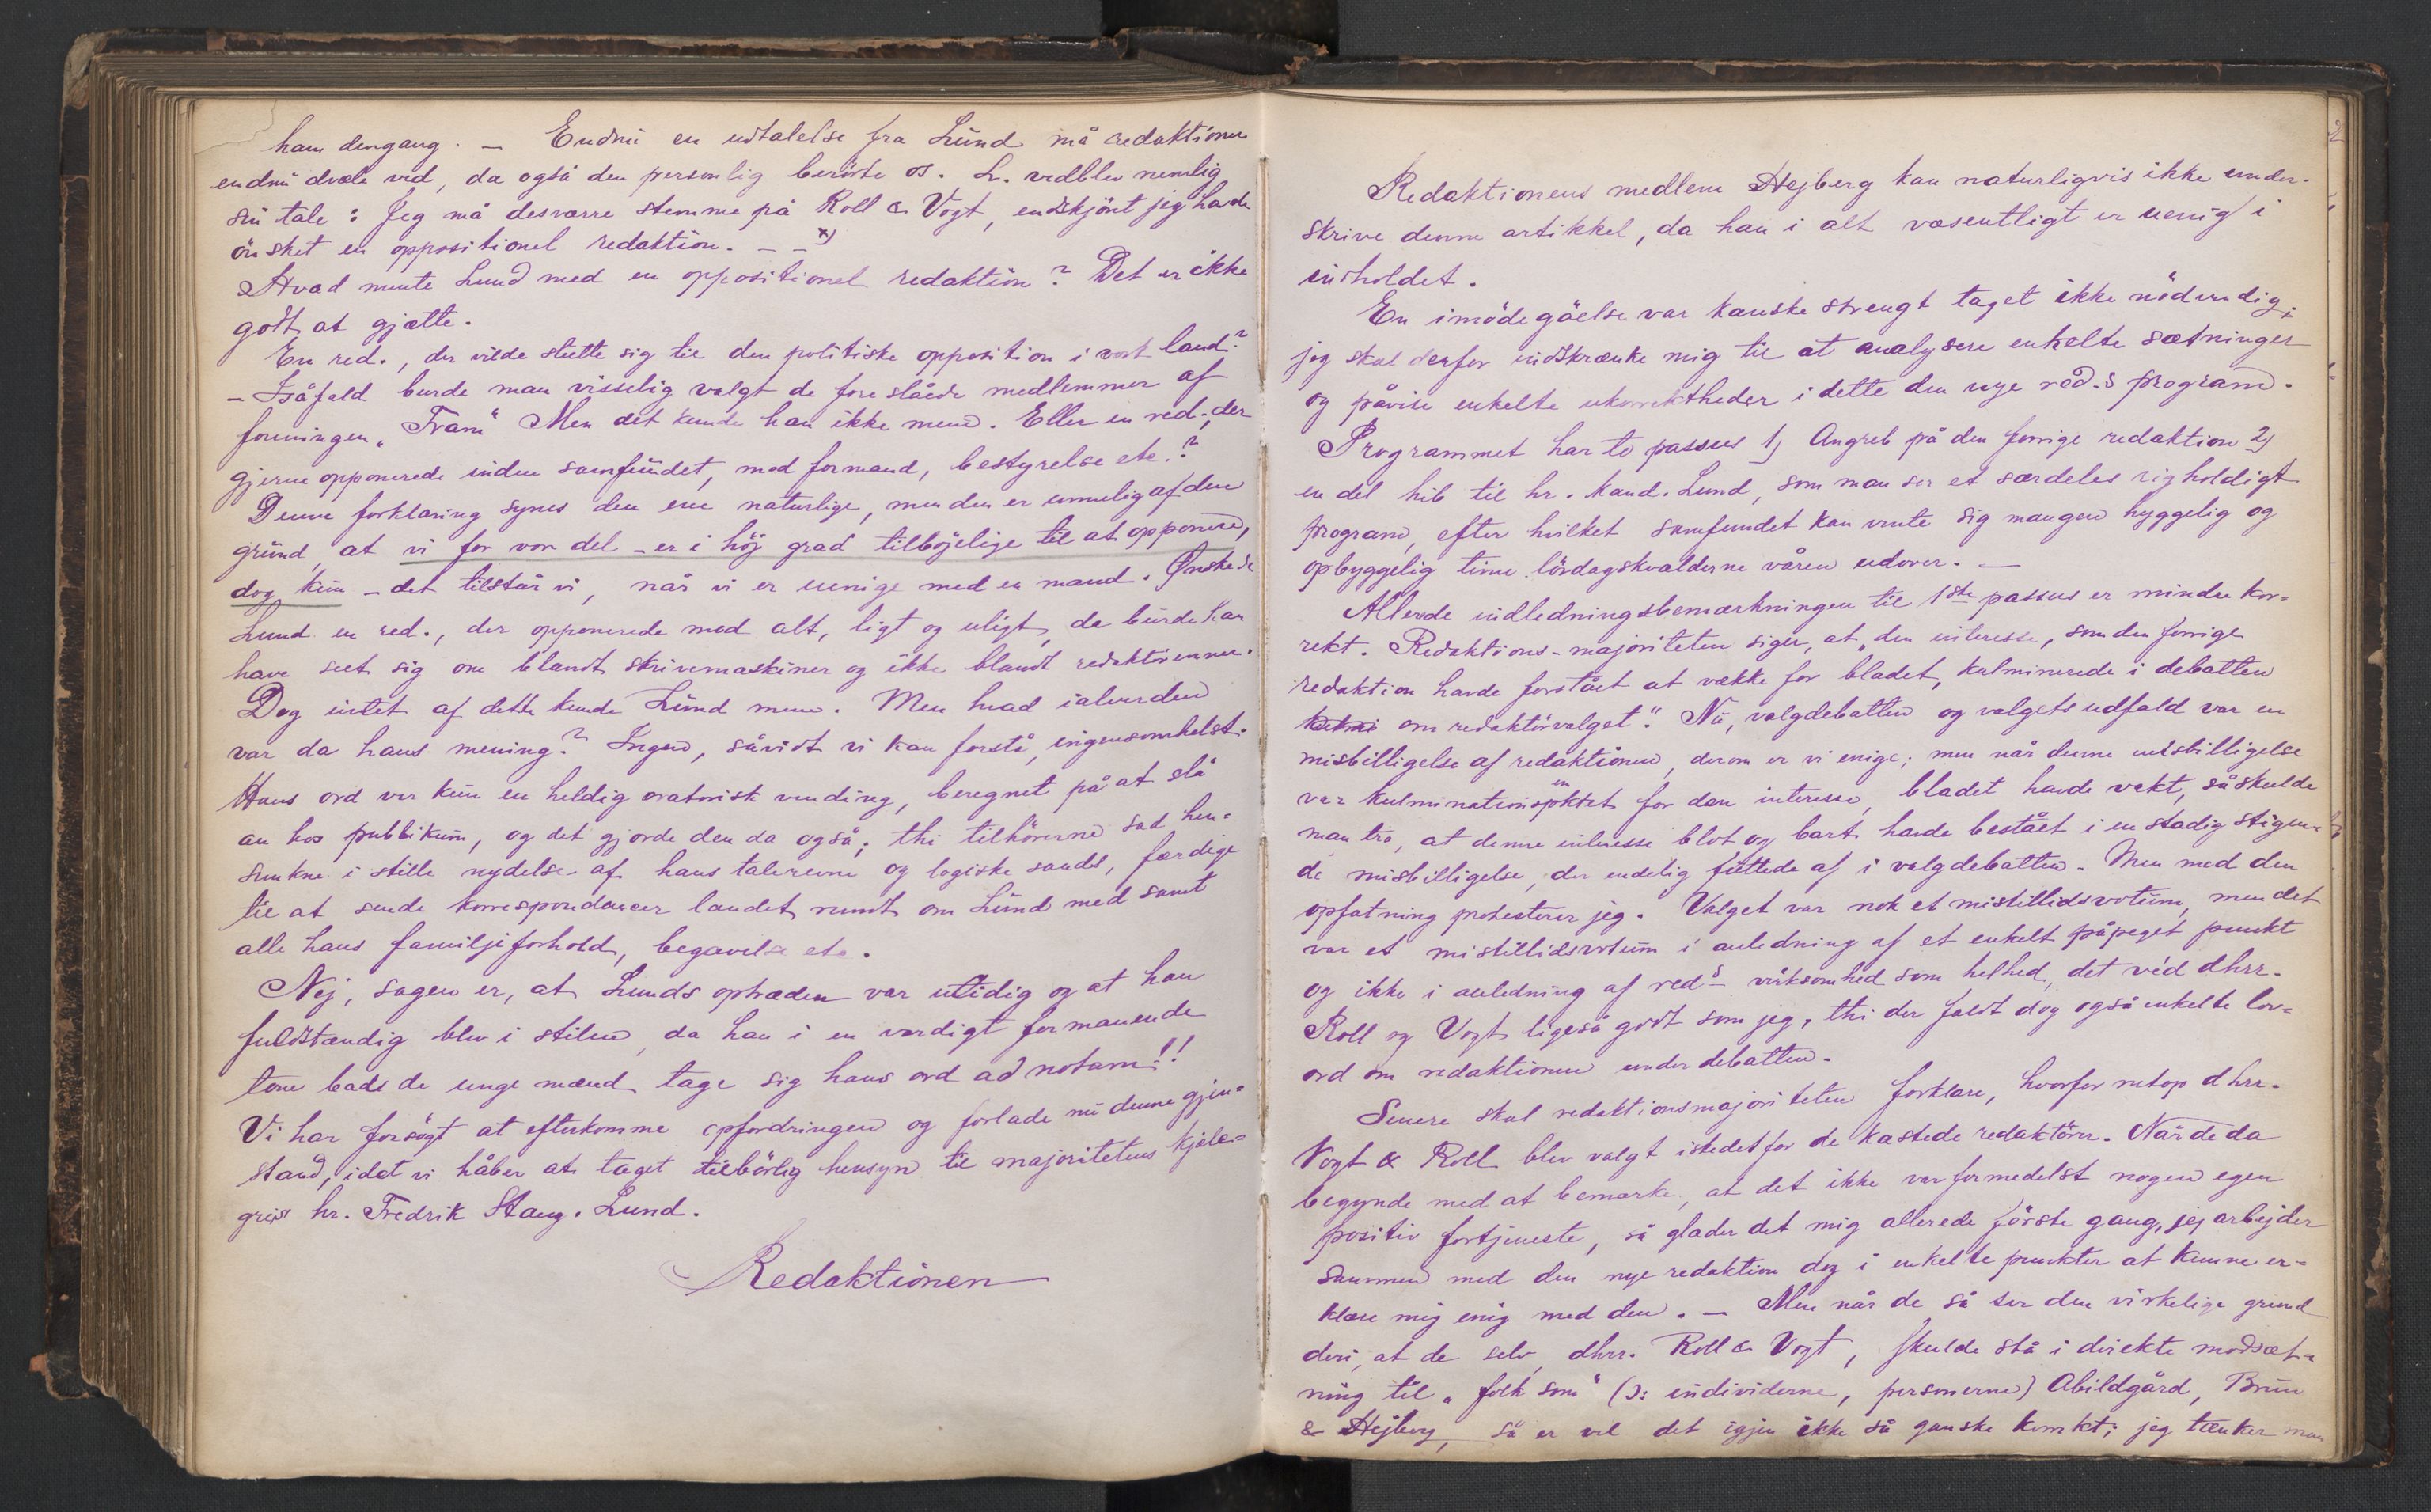 ham dengang. — Endnu en udtalelse fra Lund må redaktionen
endnu dvæle ved, da også den personlig berörte os. L. vedblev nemlig
sin tale: Jeg må desværre stemme på Roll & Vogt, endskjönt jeg havde
önsket en oppositionel redaktion. — — x)
Hvad mente Lund med en oppositionel redaktion? Det er ikke
godt at gjætte.
En red., der vilde støtte sig til den politiske opposition i vort land?
— Isåfald burde man visselig valgt de foreslåede medlemmer af
foreningen „Fram“ Men det kunde han ikke mene. Eller en red., der
gjerne opponerede inden samfundet, mod formand, bestyrelse etc.?
Denne forklaring synes den ene naturlige, men den er umulig af den
grund, at vi for vor del – er i höj grad tilböjelige til at opponere,
dog kun – det tilstår vi, når vi er uenige med en mand. Ønskede
Lund en red., der opponerede mod alt, ligt og uligt, da burde han
have seet sig om blandt skrivemaskiner og ikke blandt redaktöremner.
Dog intet af dette kunde Lund mene. Men hvad ialverden
var da hans mening? Ingen, såvidt vi kan forstå, ingensomhelst.
Hans ord var kun en heldig oratorisk vending, beregnet på at slå
an hos publikum, og det gjorde den da også; thi tilhörerne sad hen-
sunkne i stille nydelse af hans taleevne og logiske sands, færdige
til at sende korrespondancer landet rundt om Lund med samt
alle hans familjeforhold, begavelse etc.
Nej, sagen er, at Lunds optræden var utidig og at han
fuldstændig blev i stilen, da han i en værdigt formanende
tone bad de unge mænd tage sig hans ord ad notam!!
Vi har forsögt at efterkomme opfordringen og forlade nu denne gjen-
stand, idet vi håber at taget tilbörlig hensyn til majoritetens kjæle-
gris hr. Fredrik Stang. Lund.
Redaktionen
Redaktionens medlem Hejberg kan naturligvis ikke under-
skrive denne artikkel, da han i alt væsentligt er uenig i
indholdet.
En imödegåelse var kanske strengt taget ikke nödvendig;
jeg skal derfor indskrænke mig til at analysere enkelte sætninger
og påvise enkelte ukorrektheder i dette den nye red.s program.
Programmet har to passus 1) Angreb på den forrige redaktion 2)
en del hib til hr. kand. Lund, som man ser et særdeles righoldigt
program, efter hvilket samfundet kan vente sig mangen hyggelig og
opbyggelig time lördagskvælderne våren udover. —
Allerede indledningsbemærkningen til 1ste passus er mindre kor-
rekt. Redaktions-majoriteten siger, at „den interesse, som den forrige
redaktion havde forstået at vække for bladet, kulminerede i debatten
om redaktörvalget“. Nu, valgdebatten og valgets udfald var en
misbilligelse af redaktionen, derom er vi enige; men når denne misbilligelse
var kulminationspunktet for den interesse, bladet havde vekt, så skulde
man tro, at denne interesse blot og bart havde bestået i en stadig stigen-
de misbilligelse, der endelig futtede af i valgdebatten. Men med den
opfatning protesterer jeg. Valget var nok et mistillidsvotum, men det
var et mistillidsvotum i anledning af et enkelt påpeget punkt
og ikke i anledning af reds virksomhed som helhed, det véd dhrr.
Roll og Vogt ligeså godt som jeg, thi der faldt dog også enkelte lov-
ord om redaktionen under debatten.
Senere skal redaktionsmajoriteten forklare, hvorfor netop dhrr.
Vogt & Roll blev valgt istedetfor de kastede redaktörer. Når de da
begynde med at bemærke, at det ikke var formedelst nogen egen
positiv fortjeneste, så glæder det mig allerede förste gang, jeg arbejder
sammen med den nye redaktion dog i enkelte punkter at kunne er-
klære mig enig med den. — Men når de så ser den virkelige grund
deri, at de selv, dhrr. Roll & Vogt, skulde stå i direkte modsæt-
ning til „folk som“ (ɔ: individerne, personerne) Abildgård, Bruun
& Hejberg, så er vel det igjen ikke så ganske korrekt; jeg tænker man